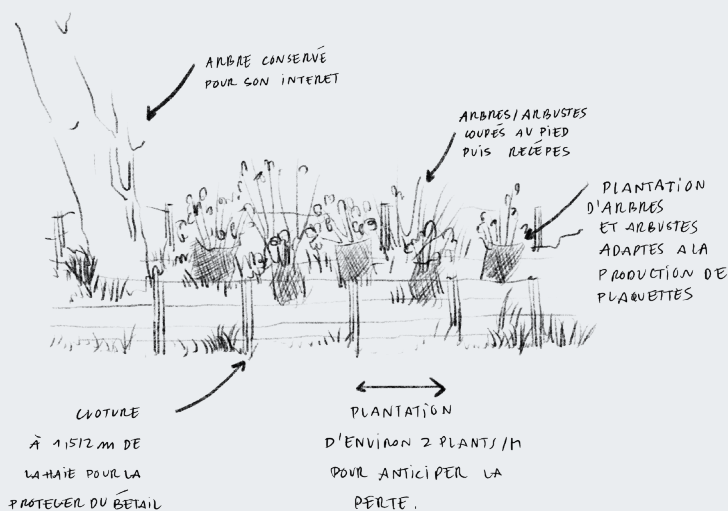 ARBRE CONSERVÉ
POUR SON INTERET
ARBRES/ARBUSTES
COUPÉS AU PIED
PUIS RECÉPES
PLANTATION
D'ARBRES
ET ARBUSTES
ADAPTES A LA
PRODUCTION DE
PLAQUETTES
CLOTURE
À 1,5/2 m DE
LA HAIE POUR LA
PROTEGER DU BÉTAIL
PLANTATION
D'ENVIRON 2 PLANTS/M
POUR ANTICIPER LA
PERTE.